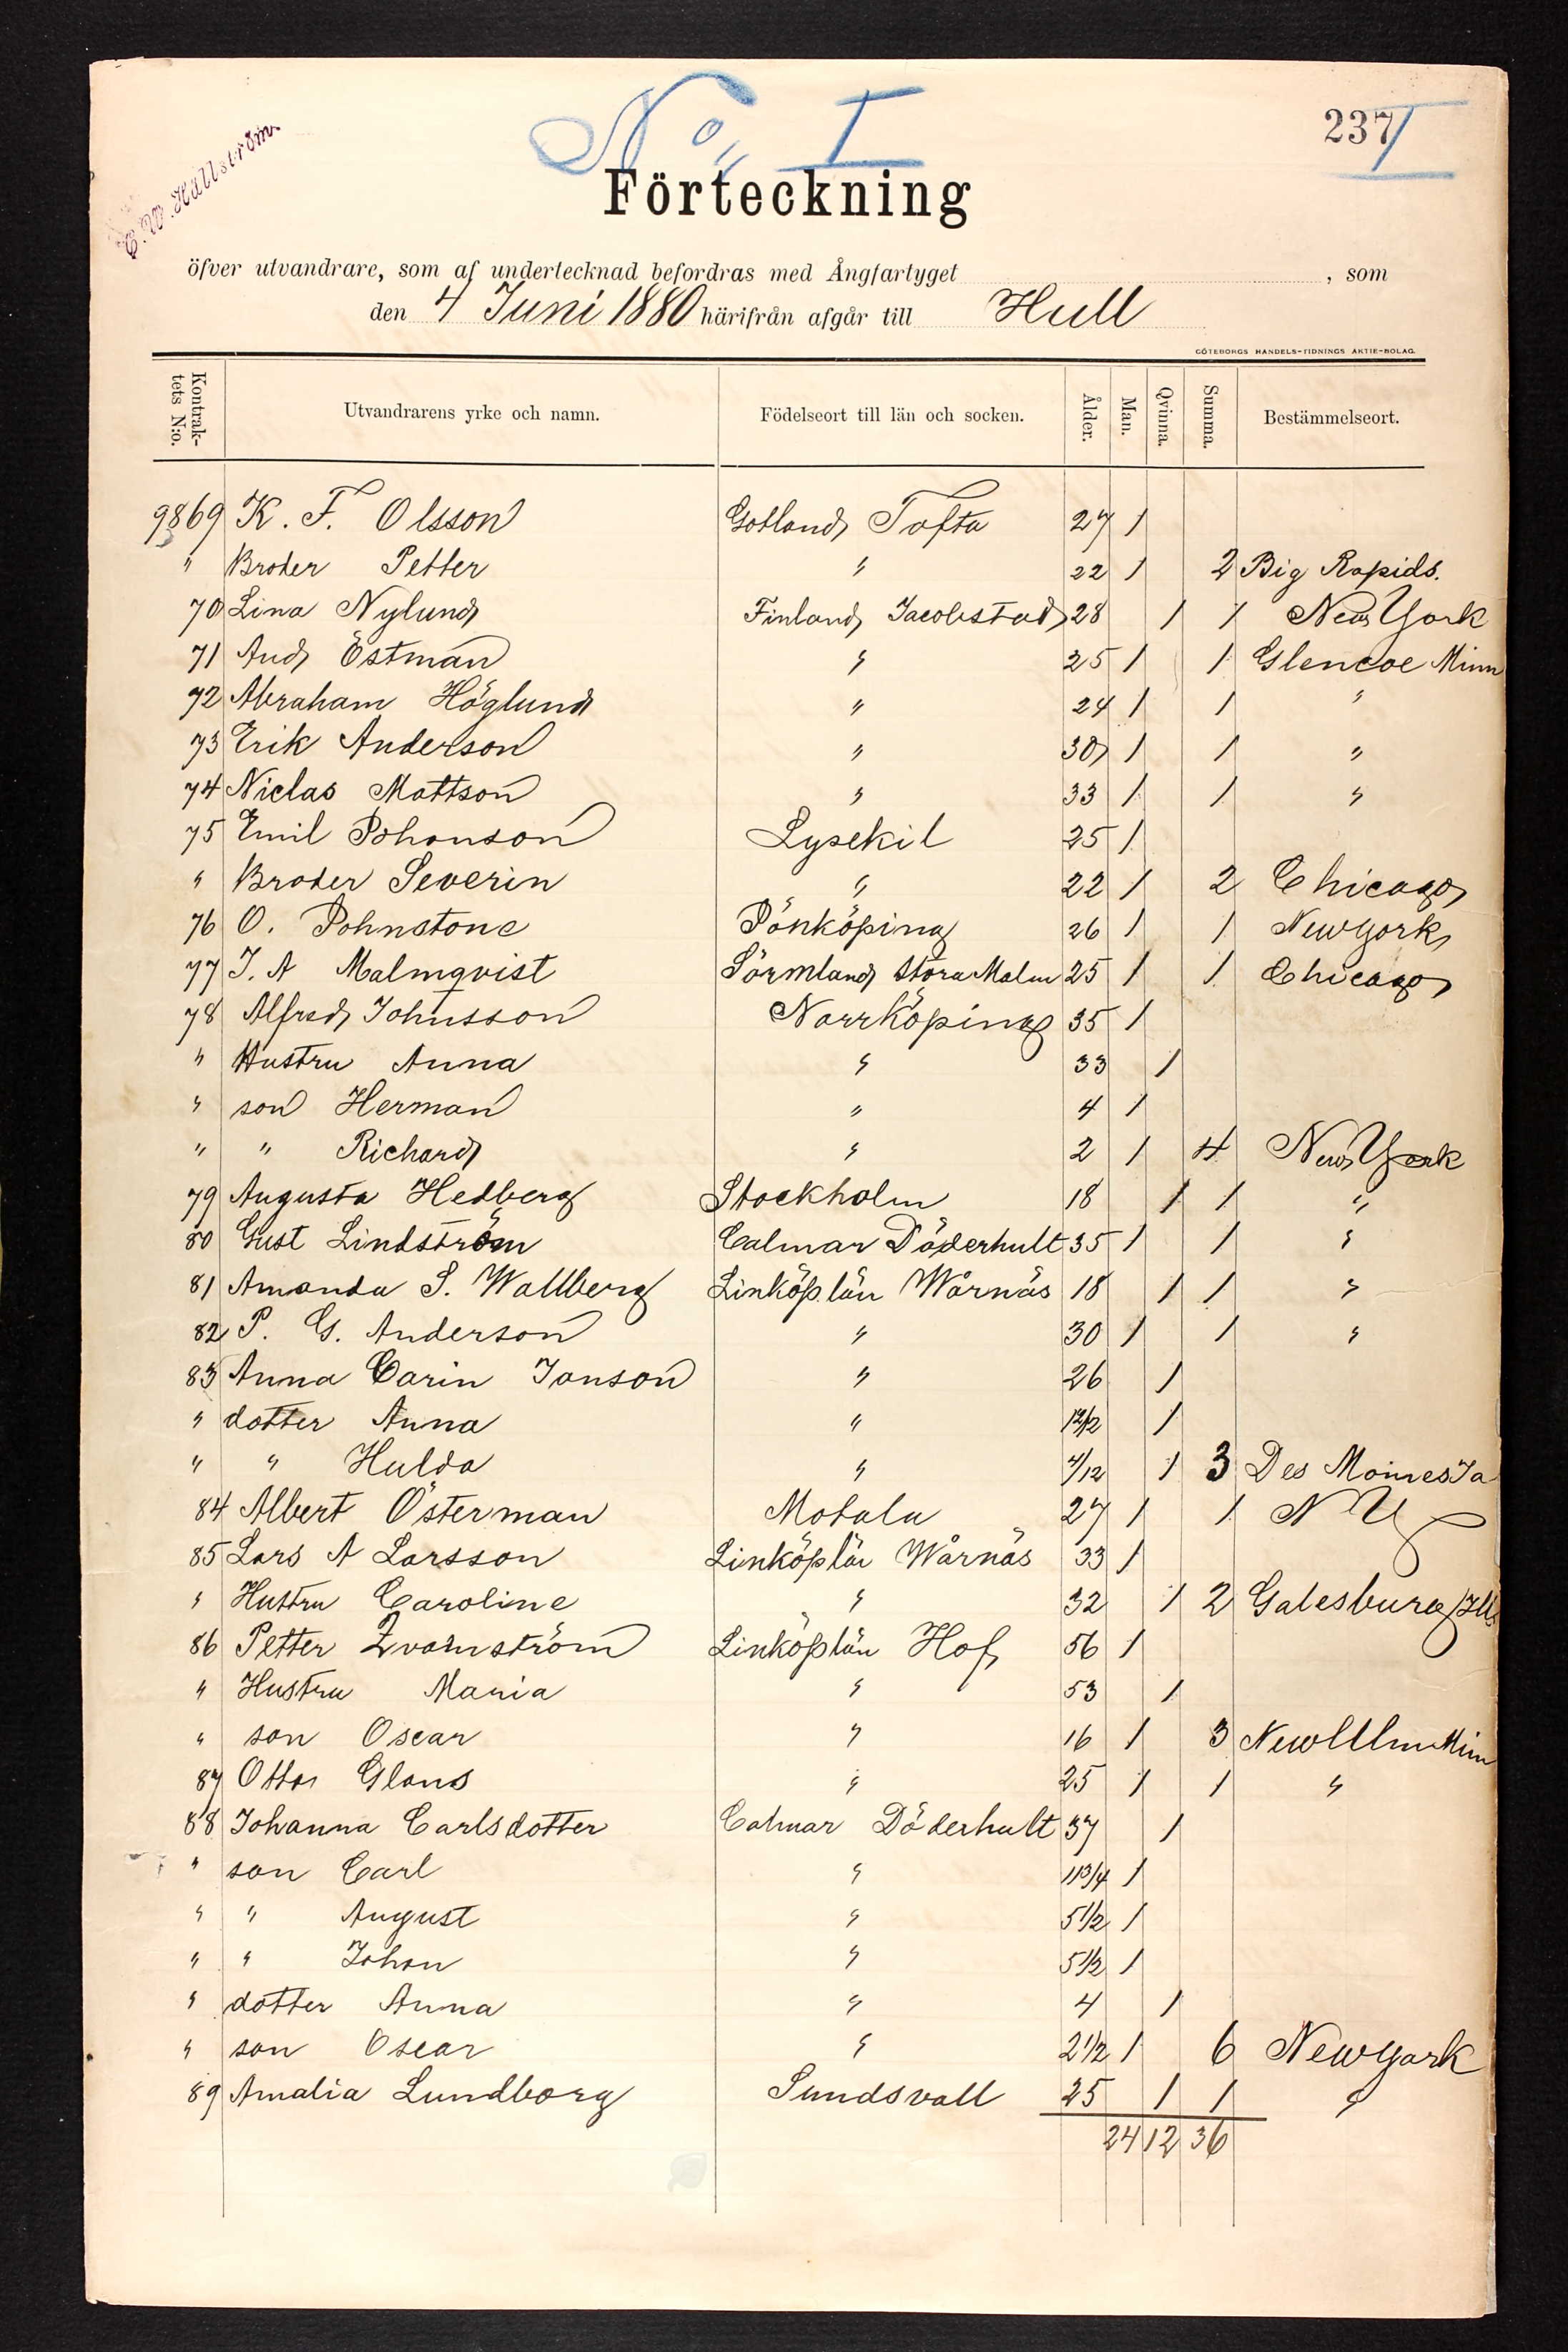 No I
237 I
C. W. Hällström.
Förteckning
öfver utvandrare, som af undertecknad befordras med Ångfartyget , som
den 4 Juni 1880 härifrån afgår till Hull
GÖTEBORGS HANDELS-TIDNINGS AKTIE-BOLAG.
Kontraktets N:o. Utvandrarens yrke och namn. Födelseort till län och socken. Ålder. Man. Qvinna. Summa. Bestämmelseort.
9869 K. F. Olsson Gotland Tofta 27 1
" Broder Petter " 22 1 2 Big Rapids.
70 Lina Nylund Finland Jacobstad 28 1 1 New York
71 And Östman " 25 1 1 Glencoe Minn
72 Abraham Höglund " 24 1 1 "
73 Erik Anderson " 30 1 1 "
74 Niclas Mattson " 33 1 1 "
75 Emil Johonson Lysekil 25 1
" Broder Severin " 22 1 2 Chicago
76 O. Johnstone Jönköping 26 1 1 New York
77 J. A Malmqvist Sörmland Stora Malm 25 1 1 Chicago
78 Alfred Johnsson Norrköping 35 1
" Hustru Anna " 33 1
" son Herman " 4 1
" " Richard " 2 1 4 New York
79 Augusta Hedberg Stockholm 18 1 1 "
80 Gust Lindström Calmar Döderhult 35 1 1 "
81 Amanda S. Wallberg Linköp. län Wårnäs 18 1 1 "
82 P. G. Anderson " 30 1 1 "
83 Anna Carin Janson " 26 1
" dotter Anna " 1
" " Hulda " 1 3 Des Moines Ia
84 Albert Österman Motala 27 1 1 N Y
85 Lars A Larsson Linköp län Wårnäs 33 1
" Hustru Caroline " 32 1 2 Galesburg Ills
86 Petter Linköp län Hof 56 1
" Hustru Maria " 53 1
" son Oscar " 16 1 3 New Ulm Minn
87 Otto Glans " 25 1 1 "
88 Johanna Carlsdotter Calmar Döderhult 37 1
" son Carl " 11 3/4 1
" " August " 5 1/2 1
" " Johan " 5 1/2 1
" dotter Anna " 4 1
" son Oscar " 2 1/2 1 6 New York
89 Amalia Lundborg Sundsvall 25 1 1 "
24 12 36